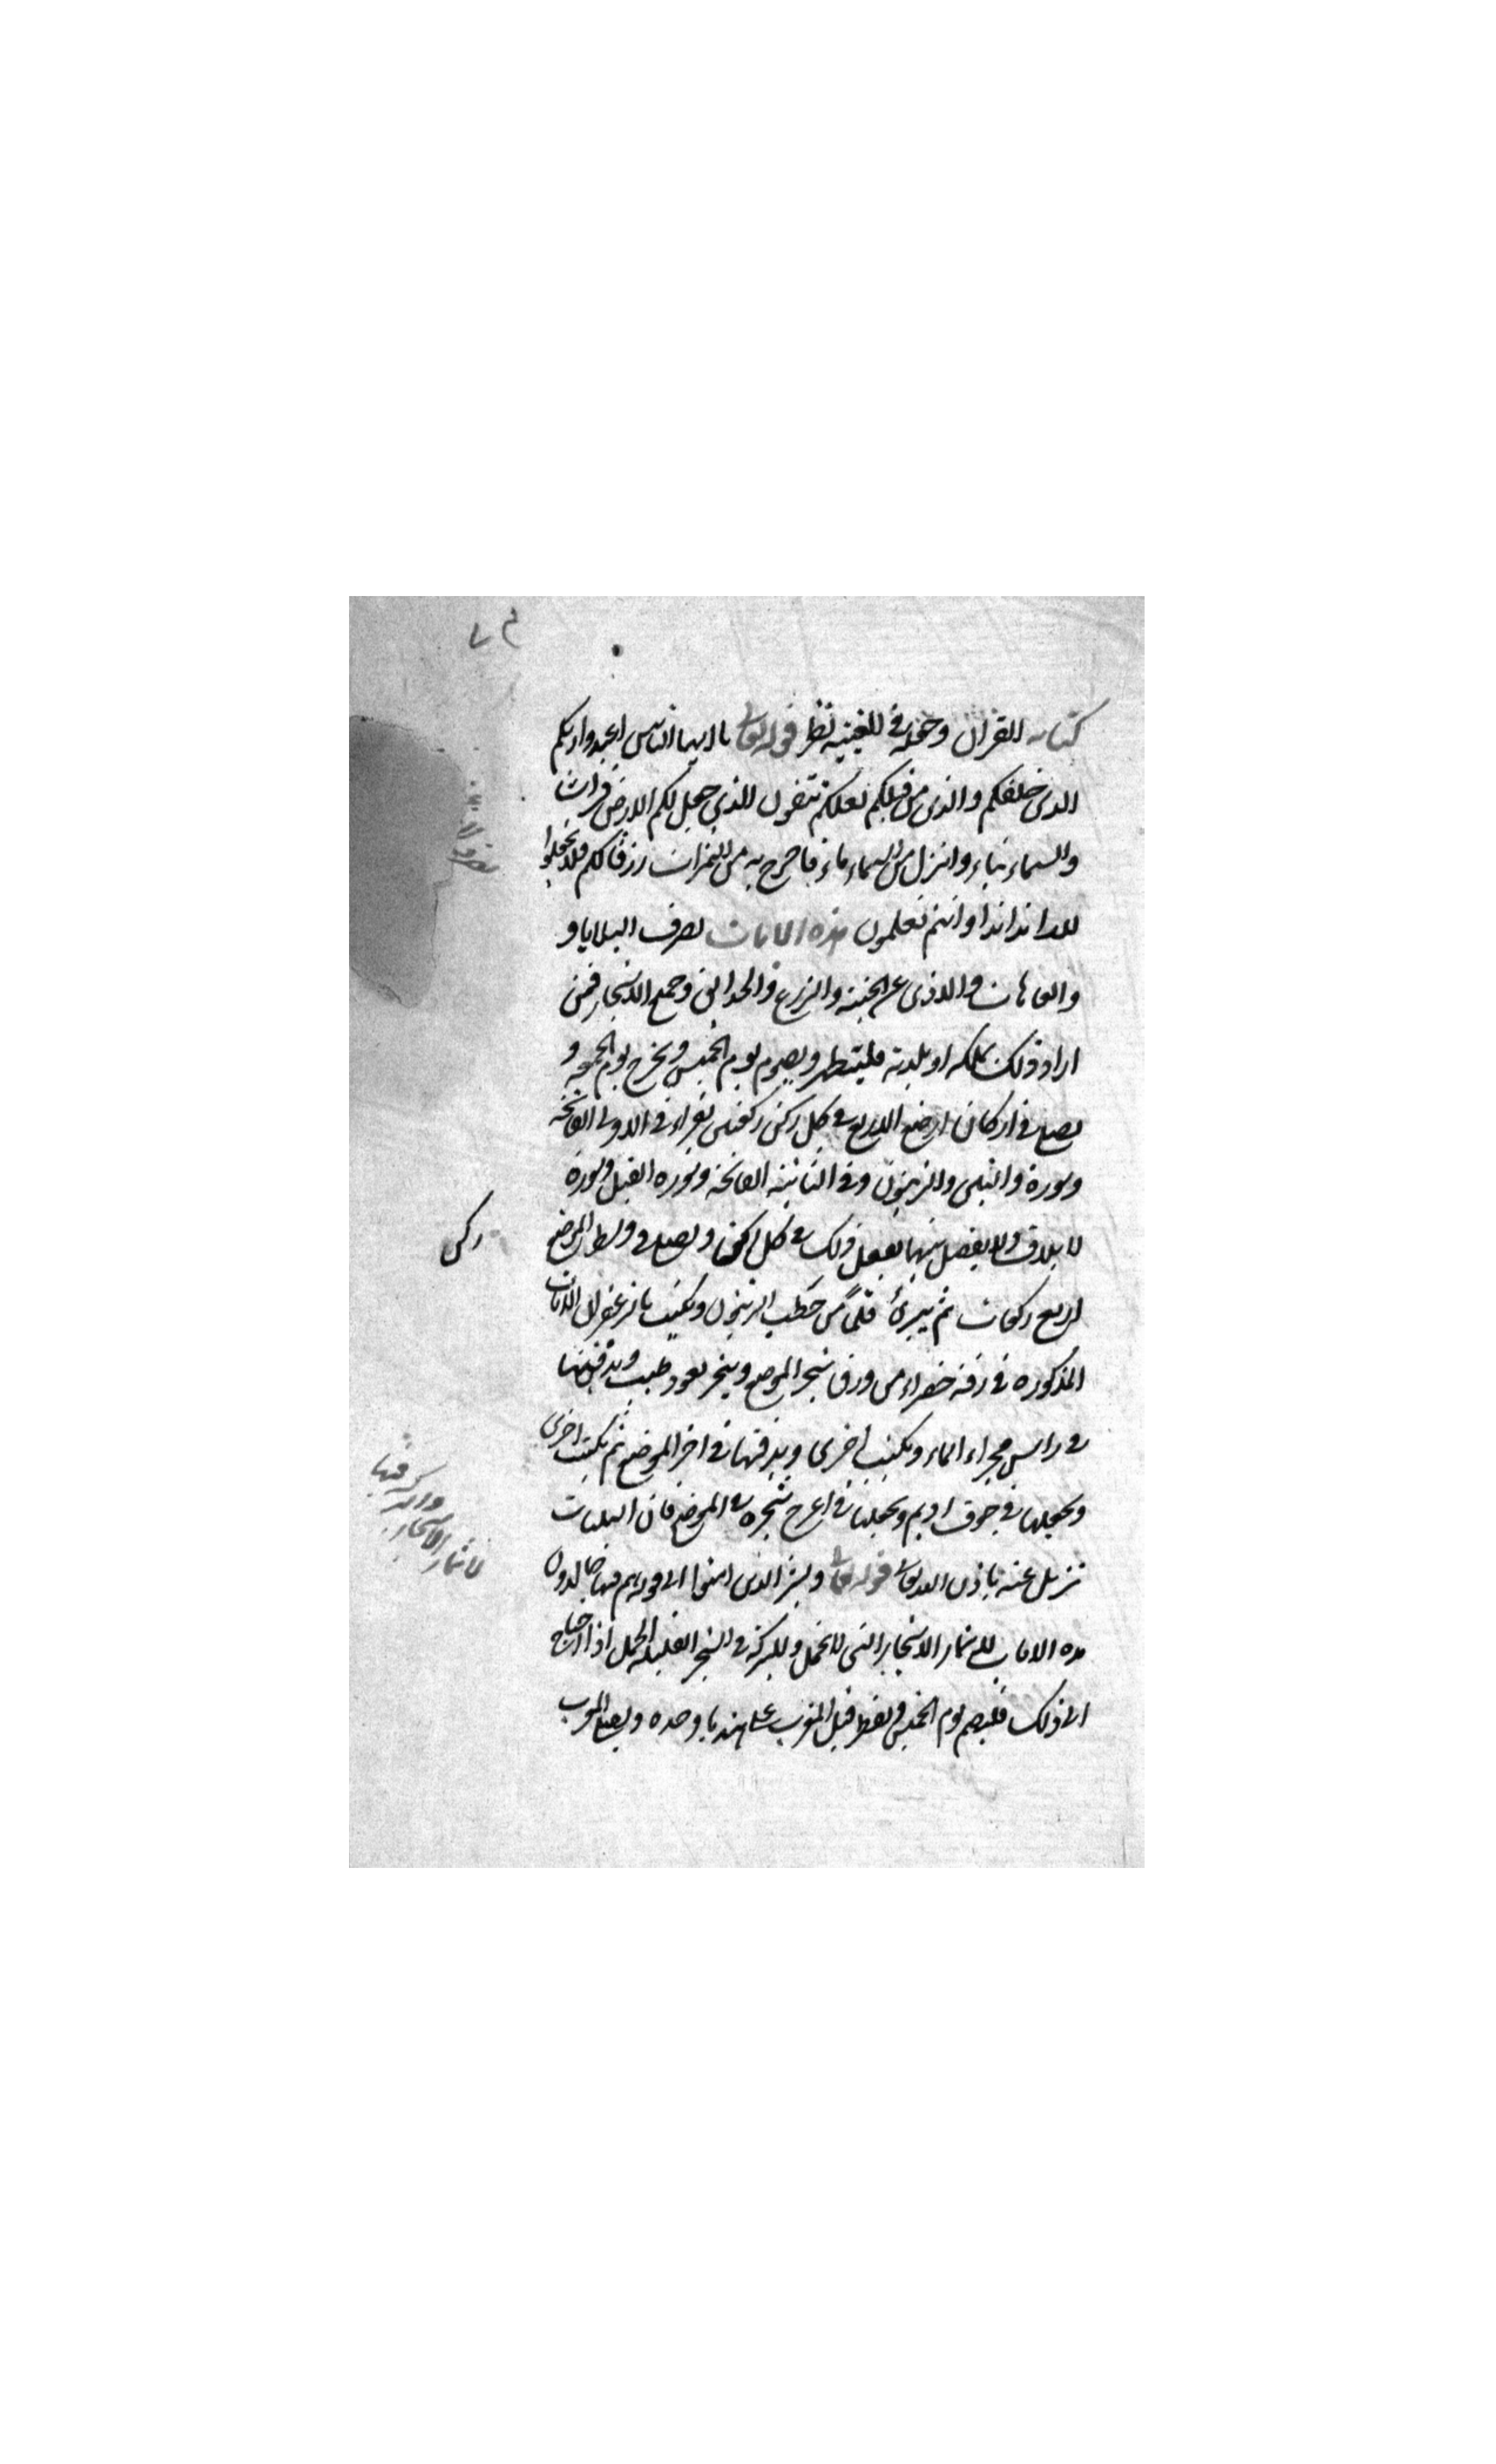 كتابه القران وحفظه في اللغينيه نظر قوله تعالى يا ايها الناس اعبدوا ربكم
الذي خلقكم والذين من قبلكم لعلكم تتقون الذي جعل لكم الارض فراشا
والسماء بناء وانزل من السماء ماء فاخرج به من الثمرات رزقا لكم فلا تجعلوا
لله اندادا وانتم تعلمون هذه الايات لصرف البلايا و
والعاهات والاذى عن الجنينه والزرع والحدائق وجمع الاشجار فمن
اراد ذلك لملكه او بلدته فليتطهر ويصوم يوم الخميس ويخرج يوم الجمعه و
يصلي في اركان ارضه الاربع في كل ركن ركعتين يقراء في الاولى الفاتحه
وسورة والتين والزيتون وفي الثانيه الفاتحه وسوره الفيل وسورة
لايلاف ولا يفصل بينهما يفعل ذلك في كل ركن ويصلي في وسط الموضع
اربع ركعات ثم يبرئ قلمًا من حطب الزيتون ويكتب بالزعفران الايات
المذكوره في رقه خضراء من ورق شجر الموضع ويبخر بعود طيب ويدفنها
في راس مجراء الماء ويكتب اخرى ويدفنها في اخر الموضع ثم يكتب اخرى
ويجعلها في جوف اديم ويجعلها في اعرج شجره في الموضع فان البليات
تزيل عنه باذن الله تعالى قوله تعالى وبشر الذين امنوا الى قوله هم فيها خالدون
هذه الايات لاثمار الاشجار التي لا تحمل وللبركه في الشجر القليله الحمل اذا احتاج
الى ذلك فليصم يوم الخميس ويفطر قبل المغرب على هندبا وحده ويصلي المغرب
ركن
لاثمار
الاشجار
والبركه فيها